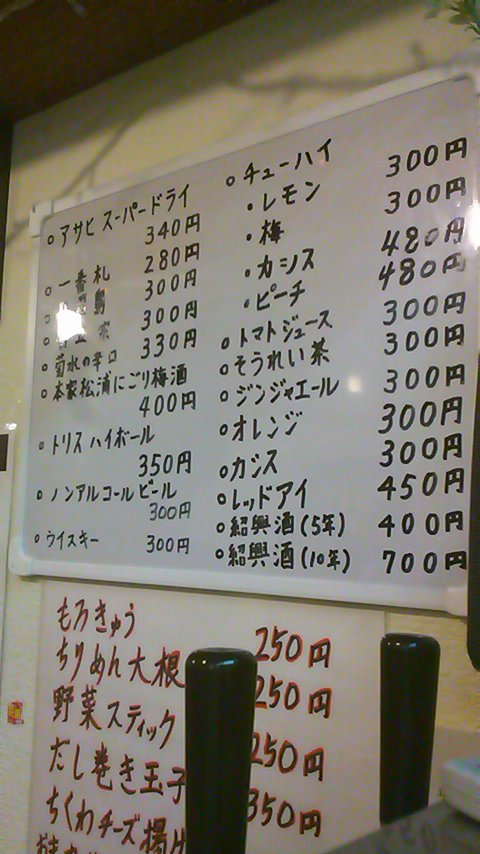 ○アサヒ スーパードライ
340円
○一番札 280円
○ 島 300円
○ 宗 300円
○菊水の辛口 330円
○本家松浦にごり梅酒
400円
○トリス ハイボール
350円
○ノンアルコールビール
300円
○ウイスキー 300円
○チューハイ 300円
・レモン 300円
・梅 480円
・カシス 480円
・ピーチ 300円
○トマトジュース 300円
○そうれい茶 300円
○ジンジャエール 300円
○オレンジ 300円
○カシス 450円
○レッドアイ 400円
○紹興酒(5年) 700円
○紹興酒(10年)
もろきゅう 250円
ちりめん大根 250円
野菜スティック 250円
だし巻き玉子 350円
ちくわチーズ揚げ